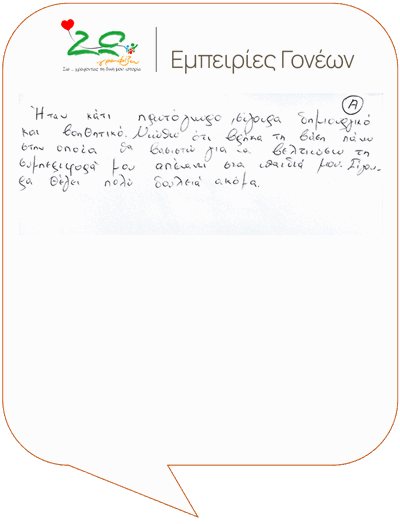 Συν ... γράφοντας τη δική μου ιστορία
Εμπειρίες Γονέων
Α
Ήταν κάτι πρωτόγνωρο, σίγουρα δημιουργικό
και βοηθητικό. Νιώθω ότι βρήκα τη βάση πάνω
στην οποία θα βασιστώ για να βελτιώσω τη
συμπεριφορά μου απέναντι στα παιδιά μου. Σίγου-
ρα θέλει πολύ δουλειά ακόμα.